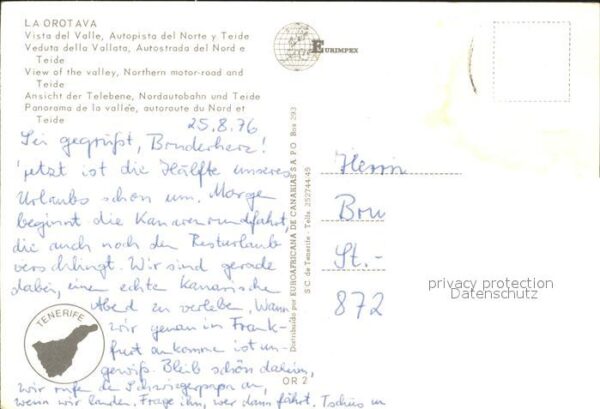 LA OROTAVA
Vista del Valle, Autopista del Norte y Teide
Veduta della Vallata, Autostrada del Nord e
Teide
View of the valley, Northern motor-road and
Teide
Ansicht der Telebene, Nordautobahn und Teide
Panorama de la vallée, autoroute du Nord et
Teide
EURIMPEX
25.8.76
Sei gegrüßt, Bruderherz!
jetzt ist die Hälfte unseres
Urlaubs schon um. Morgen
beginnt die Kamerarundfahrt
die auch noch den Resturlaub
verschlingt. Wir sind gerade
dabei, einen echte Kanarische
Abend zu verleben. Wann
wir genau in Frank-
furt ankomme ist un-
gewiß. Bleib schön daheim,
wir rufen die Schwiegerpapa an,
wenn wir landen. Frage ihn, wer dann fährt. Tschüs
TENERIFE
OR 2
Distribuido por EUROAFRICANA DE CANARIAS S A P O Box 293
S C. de Tenerife - Telfs. 252744-49
Herrn
Bru
St.-
872
privacy protection
Datenschutz